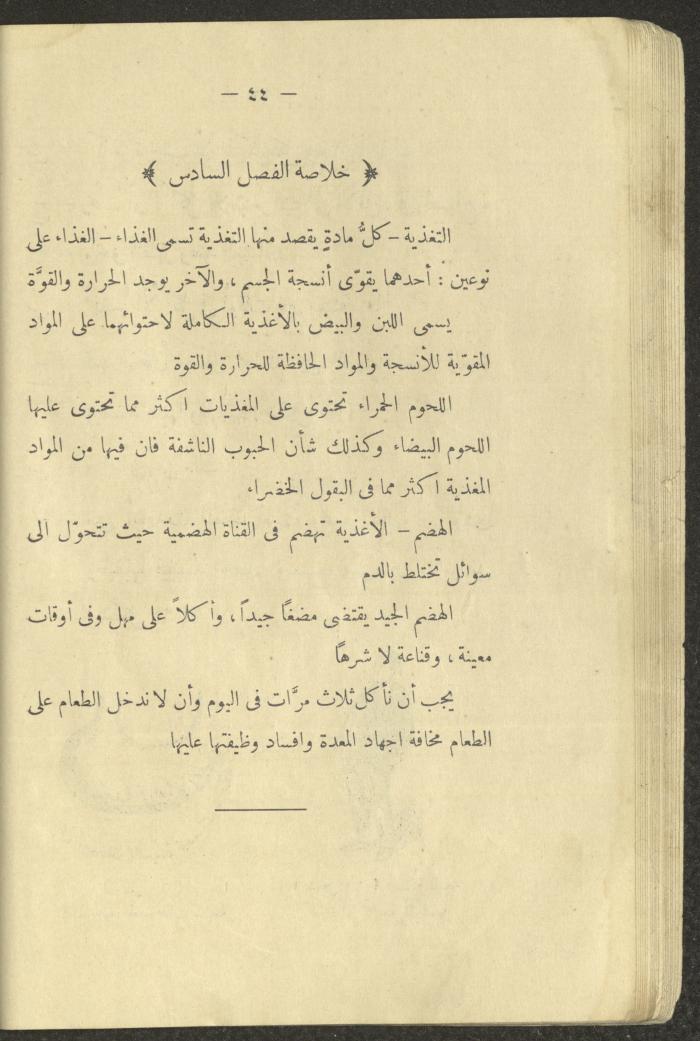 — ٤٤ —
﴿ خلاصة الفصل السادس ﴾
التغذية – كلُّ مادةٍ يقصد منها التغذية تسمى الغذاء – الغذاء على
نوعين : أحدهما يقوّى أنسجة الجسم ، والآخر يوجد الحرارة والقوَّة
يسمى اللبن والبيض بالأغذية الكاملة لاحتوائهما على المواد
المقوّية للأنسجة والمواد الحافظة للحرارة والقوة
اللحوم الحمراء تحتوى على المغذيات اكثر مما تحتوى عليها
اللحوم البيضاء وكذلك شأن الحبوب الناشفة فان فيها من المواد
المغذية اكثر مما فى البقول الخضراء
الهضم – الأغذية تهضم فى القناة الهضمية حيث تتحوّل الى
سوائل تختلط بالدم
الهضم الجيد يقتضى مضغًا جيداً ، وأكلاً على مهل وفى أوقات
معينة ، وقناعة لا شرهًا
يجب أن نأكل ثلاث مرَّات فى اليوم وأن لا ندخل الطعام على
الطعام مخافة اجهاد المعدة وافساد وظيفتها عليها